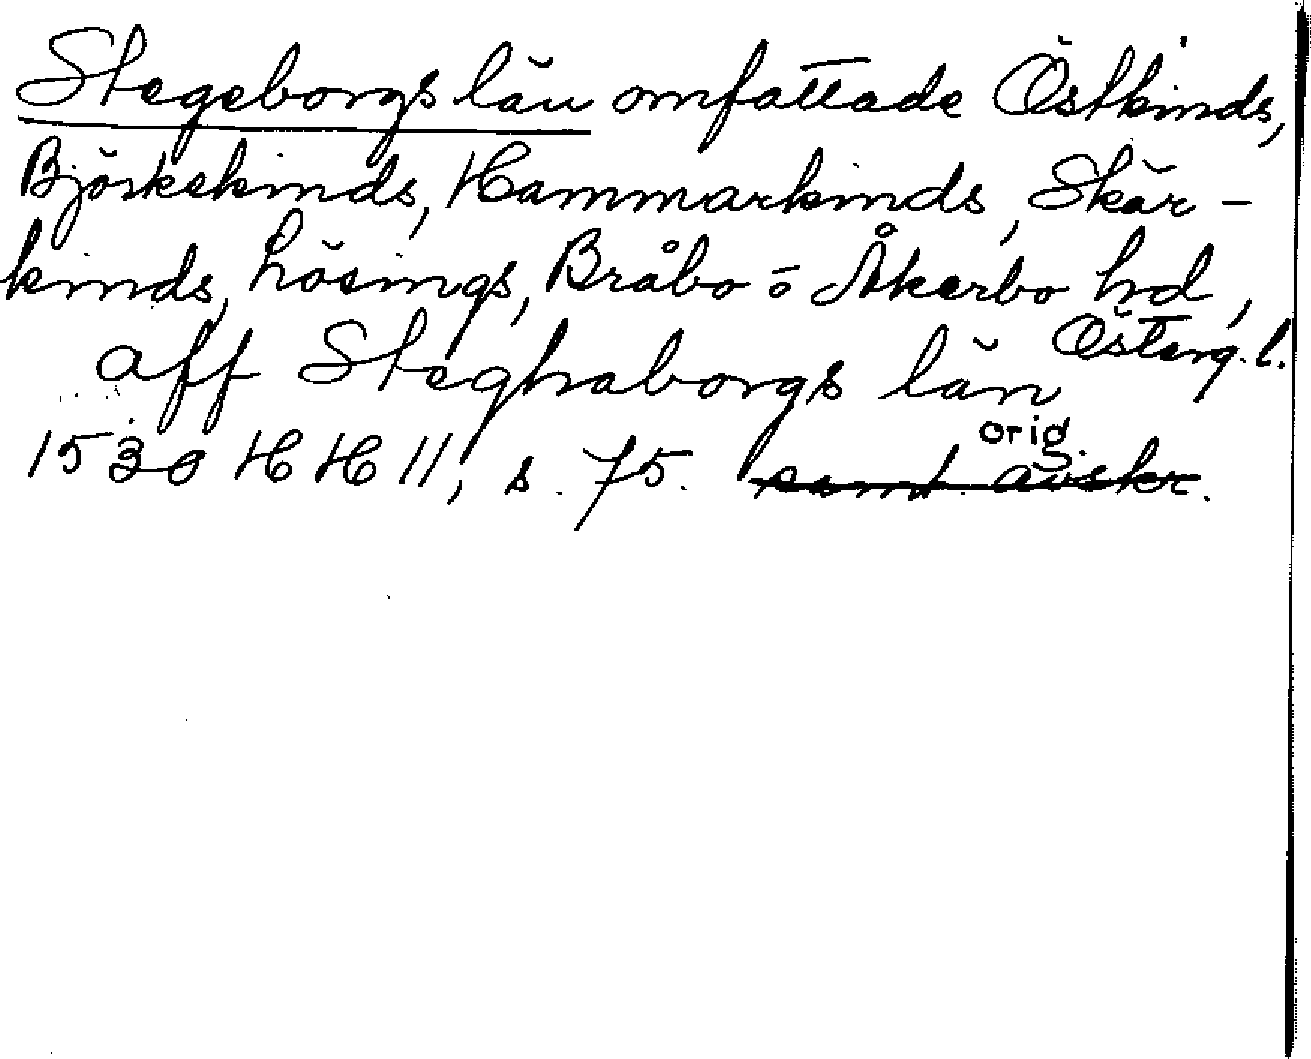 Stegeborgs län omfattade Östkinds,
Björkekinds, Hammarkinds, Skär-
kinds, Lösings, Bråbo o Åkerbo hd,
Österg. l.
aff Steghaborgs län
orig.
1530 HH 11, s. 75. samt. avskr.